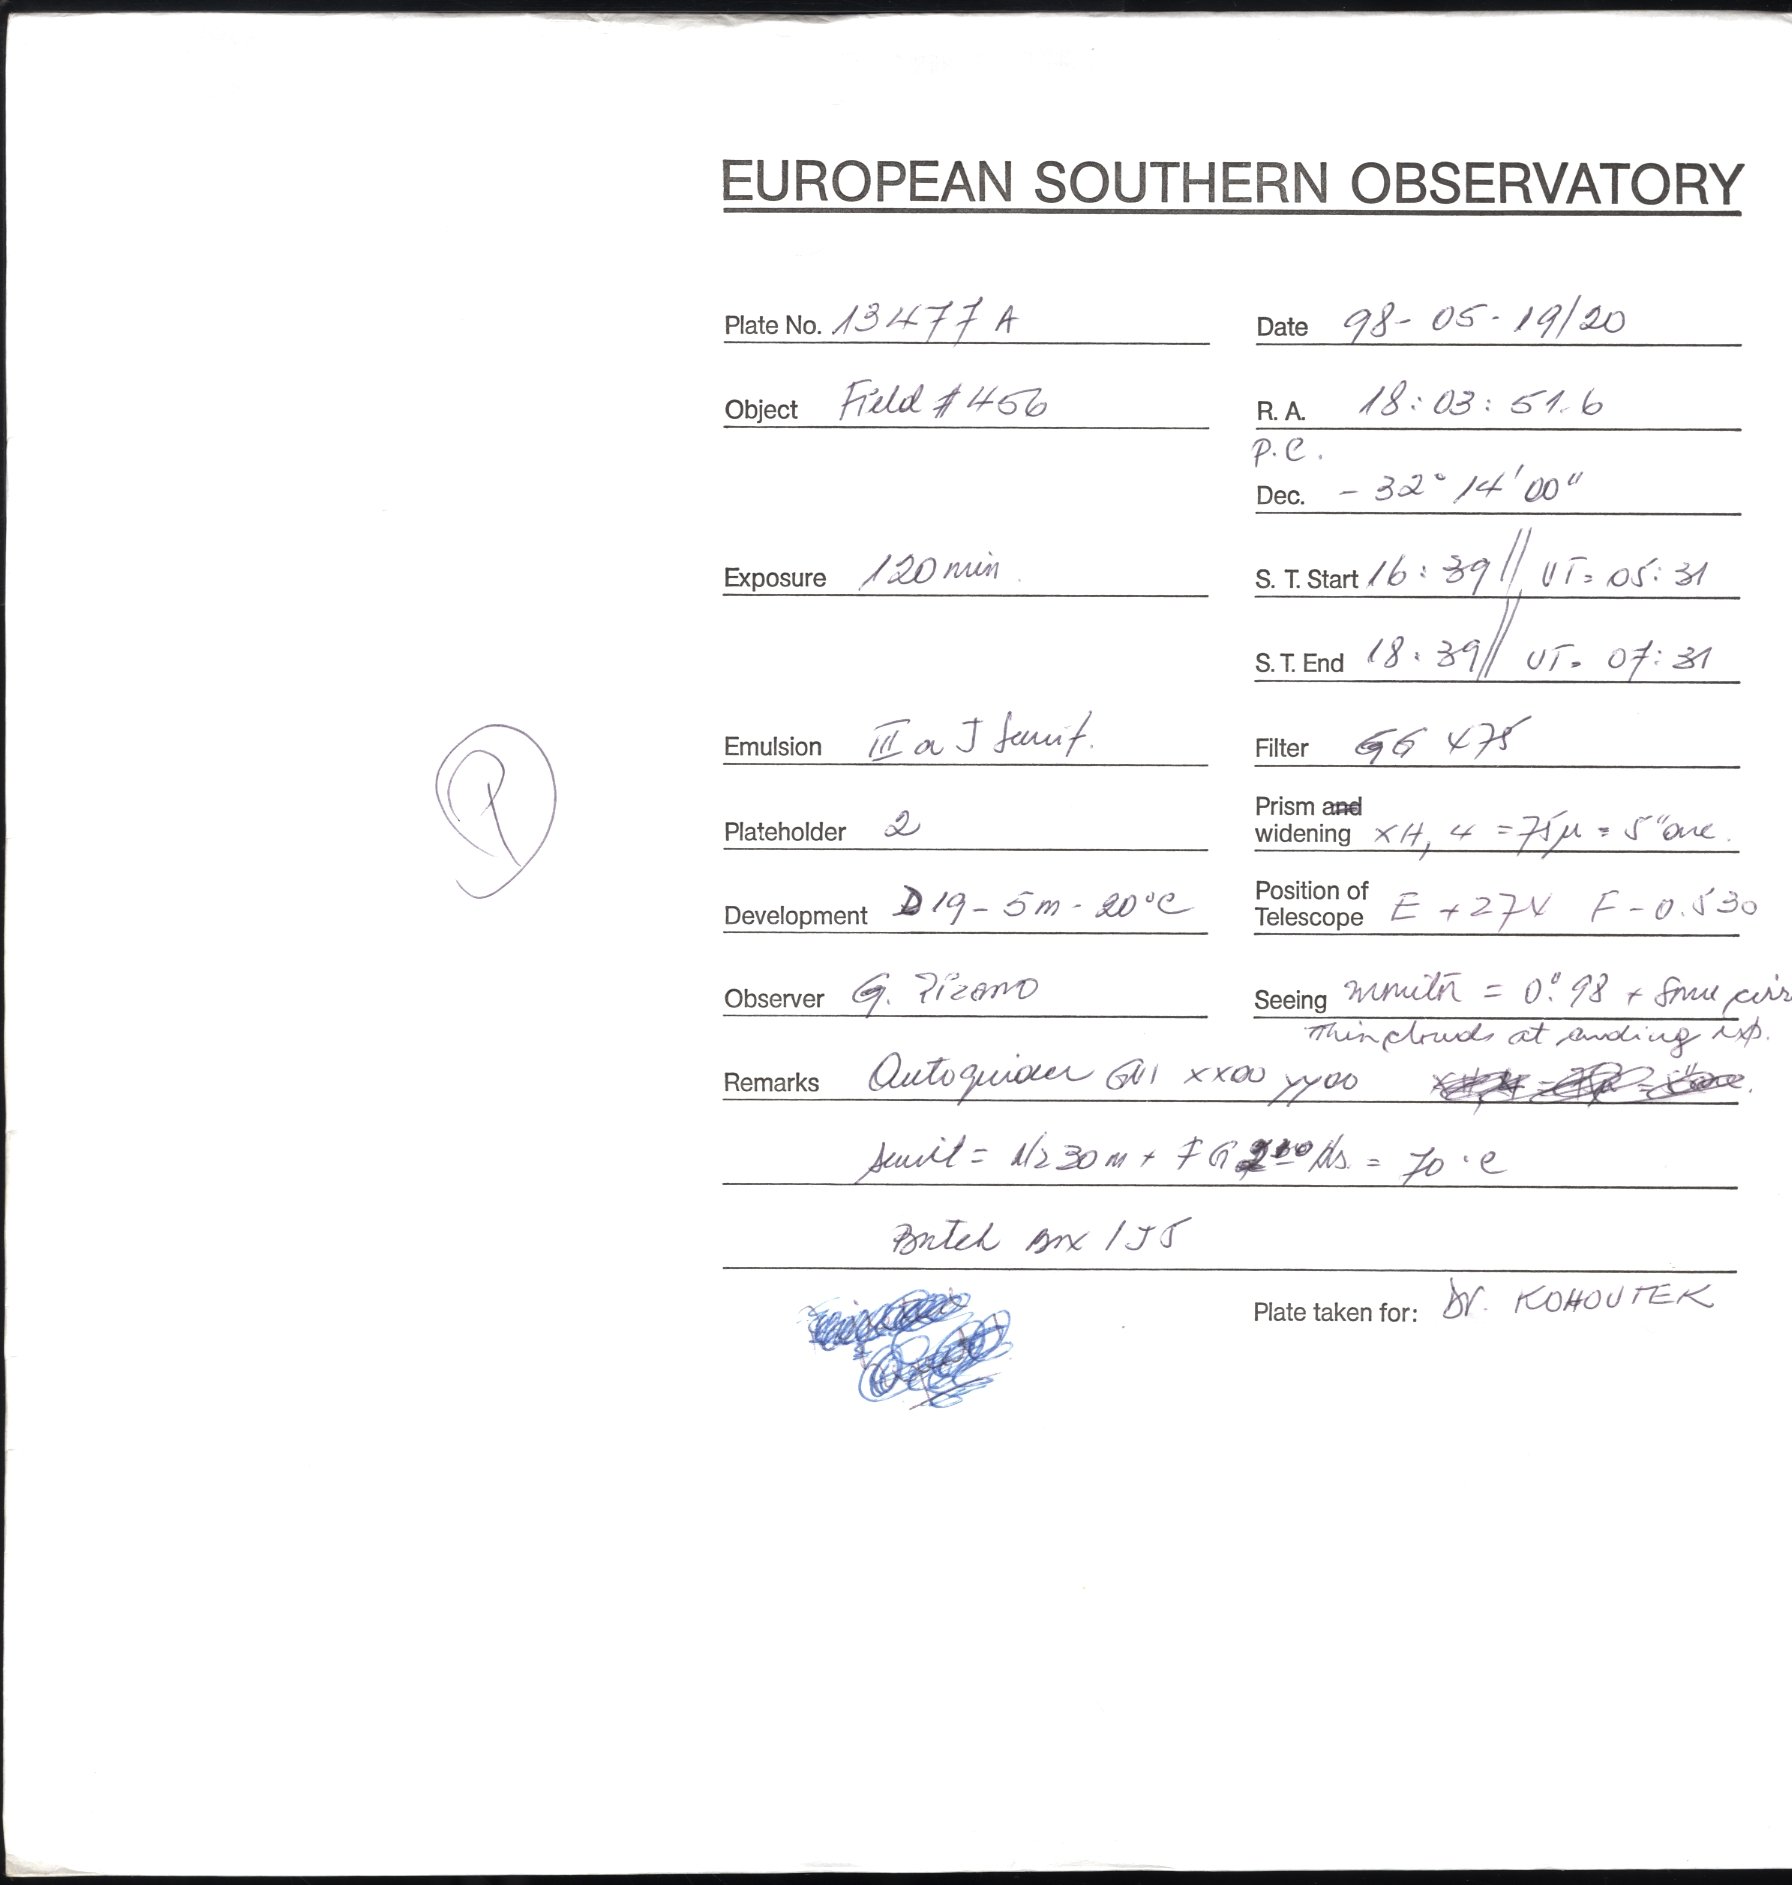 EUROPEAN SOUTHERN OBSERVATORY
Plate No. 13477 A
Date 98-05-19/20
Object Field # 456
R. A. 18:03:51.6
P.C.
Dec. - 32° 14' 00"
Exposure 120 min.
S. T. Start 16:39 // UT= 05:31
S. T. End 18:39 // UT= 07:31
Emulsion III a J
Filter GG 475
Plateholder 2
Prism and
widening XH, 4 = 75µ = 5"arc.
Development D19 - 5m - 20°C
Position of
Telescope E +274 F -0.530
Observer G. Pizarro
Seeing monitor = 0."98 + some
Thin clouds at ending exp.
Remarks Autoguider GN1 XX00 YY00
= N2 30m + FG = 70°C
Batch Box 1J5
Plate taken for: Dr. KOHOUTEK